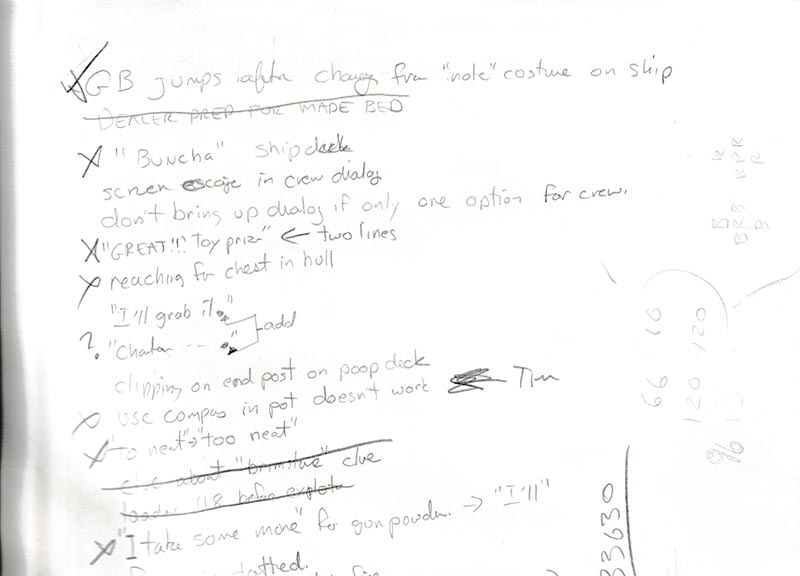 GB jumps after change from "note" costume on ship
DEALER PREP FOR MADE BED
X "Buncha" ship deck
screen escape in crew dialog
don't bring up dialog if only one option for crew.
X "GREAT!!! Toy prize" ← two lines
X reaching for chest in hull
"I'll grab it."
add
? "Chatan --- ."
clipping on end post on poop deck
X use compas in pot doesn't work Tim
X "to neat" → "too neat"
clue about "brimstone" clue
118 before
X "I take some more" for gun powder. → "I'll"
dotted.
R
R P R
R
B
B R B
B
66 10
120 120
%
33630